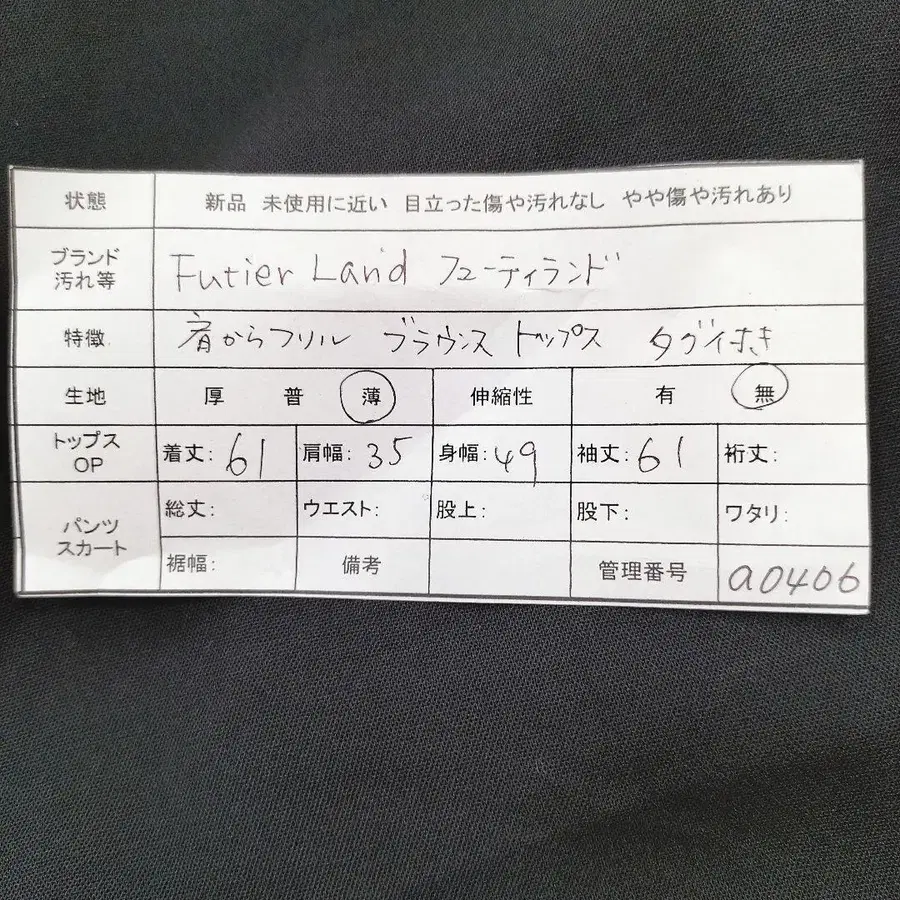 状態 新品 未使用に近い 目立った傷や汚れなし やや傷や汚れあり
ブランド
汚れ等 Futier Land フューティランド
特徴 肩からフリル ブラウンス トップス タグ付き
生地 厚 普 薄 伸縮性 有 無
トップス
OP 着丈: 61 肩幅: 35 身幅: 49 袖丈: 61 裄丈:
パンツ
スカート 総丈: ウエスト: 股上: 股下: ワタリ:
裾幅: 備考 管理番号 a0406